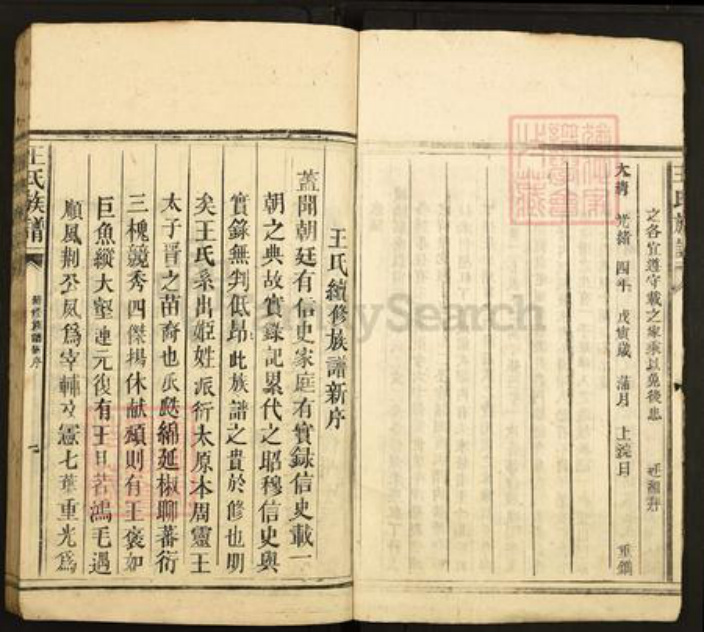 王氏族譜
之各宜遵守載之家乘以免後患
大清 光緒 四年 戊寅歲 蒲月 上浣日 重鐫
王氏續修族譜新序
蓋聞朝廷有信史家庭有實錄信史載一
朝之典故實錄記累代之昭穆信史與
實錄無判低昂此族譜之貴於修也明
矣王氏系出姬姓派衍太原本周靈王
太子晋之苗裔也瓜瓞綿延椒聊蕃衍
三槐競秀四傑揚休献頌則有王褒如
巨魚縱大壑連元復有王旦若鴻毛遇
順風荆公夙爲宰輔文憲七葉重光爲
王氏族譜
MySearch